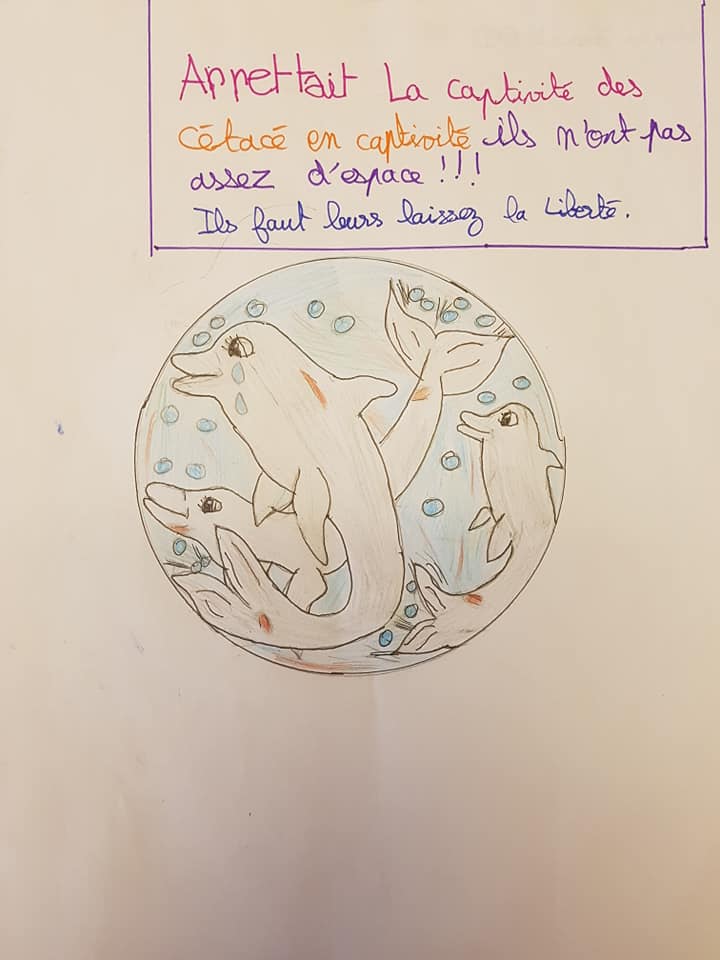 Arrettait La captivité des
cétacé en captivité ils n'ont pas
assez d'espace !!!
Ils faut leurs laissez la Liberté.